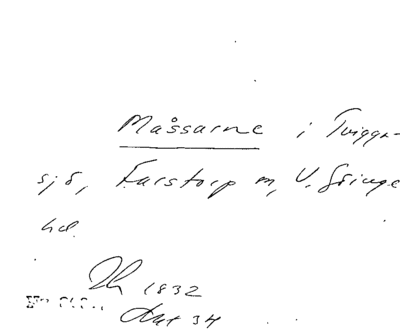 Måssarne i Tvigga-
sjö, Farstorp m, V. Göinge
hd.
1832
Ant 34